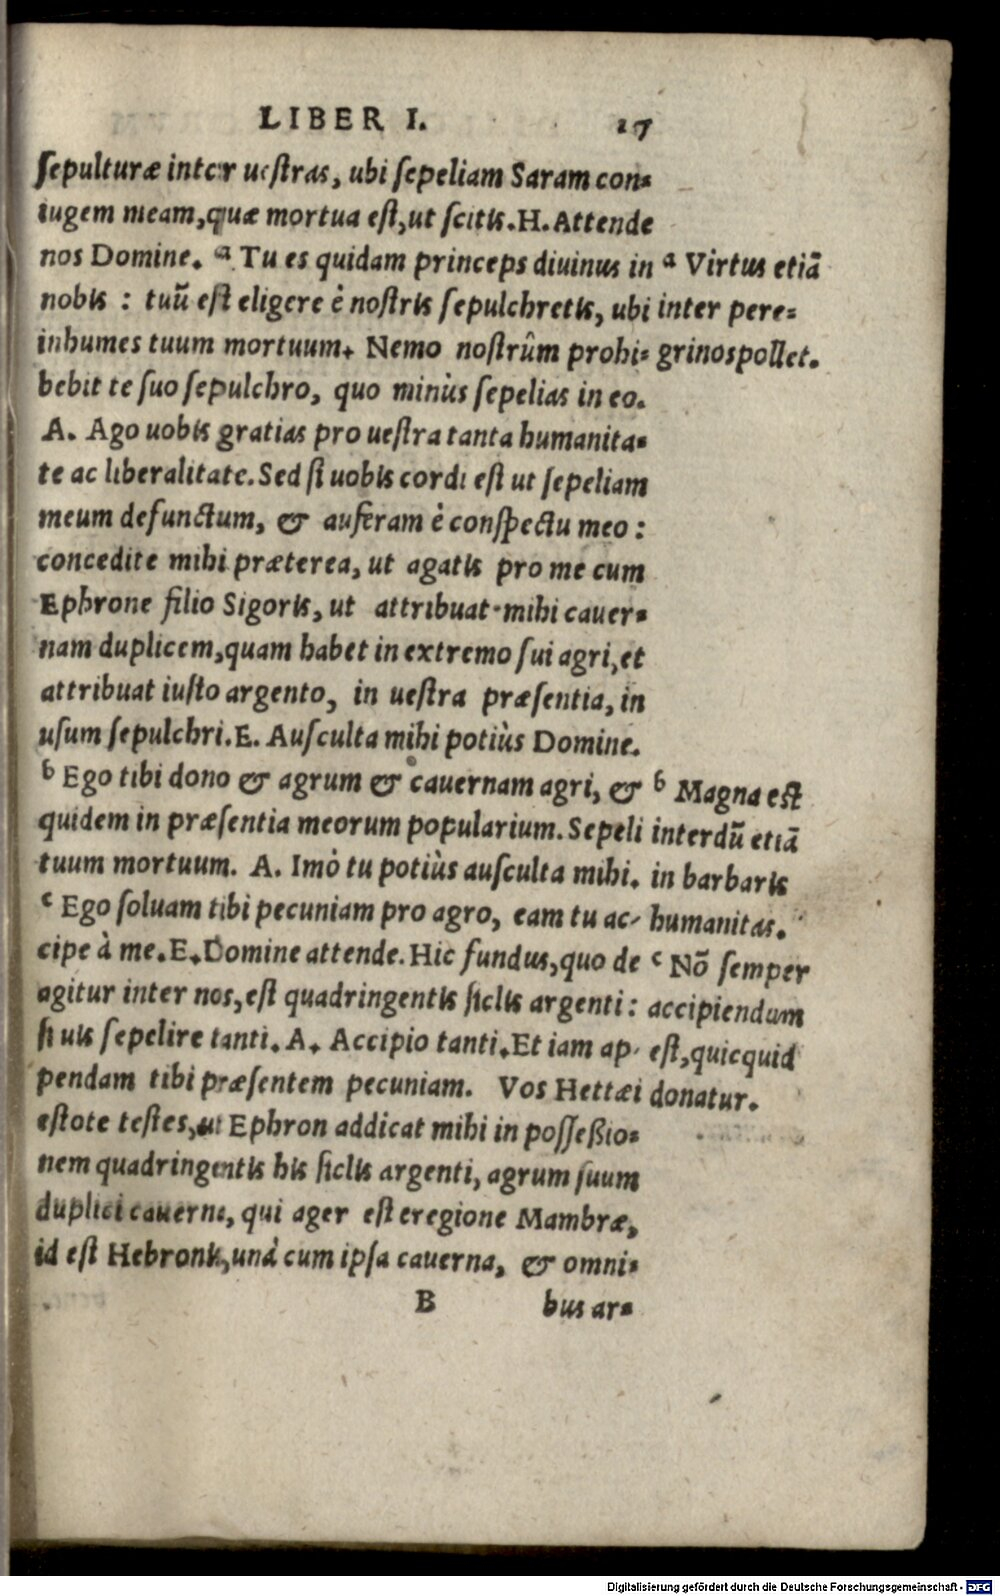 LIBER I. 17
sepulturæ inter uestras, ubi sepeliam Saram con-
iugem meam, quæ mortua est, ut scitis. H. Attende
nos Domine. ᵃ Tu es quidam princeps diuinus in
nobis : tuū est eligere è nostris sepulchretis, ubi
inhumes tuum mortuum. Nemo nostrûm prohi-
bebit te suo sepulchro, quo minùs sepelias in eo.
A. Ago uobis gratias pro uestra tanta humanita-
te ac liberalitate. Sed si uobis cordi est ut sepeliam
meum defunctum, & auferam è conspectu meo :
concedite mihi præterea, ut agatis pro me cum
Ephrone filio Sigoris, ut attribuat mihi cauer-
nam duplicem, quam habet in extremo sui agri, et
attribuat iusto argento, in uestra præsentia, in
usum sepulchri. E. Ausculta mihi potiùs Domine.
ᵇ Ego tibi dono & agrum & cauernam agri, &
quidem in præsentia meorum popularium. Sepeli
tuum mortuum. A. Imò tu potiùs ausculta mihi.
ᶜ Ego soluam tibi pecuniam pro agro, eam tu ac-
cipe à me. E. Domine attende. Hic fundus, quo de
agitur inter nos, est quadringentis siclis argenti :
si uis sepelire tanti. A. Accipio tanti. Et iam ap-
pendam tibi præsentem pecuniam. Vos Hettæi
estote testes, ut Ephron addicat mihi in posseßio-
nem quadringentis his siclis argenti, agrum suum
duplici cauerna, qui ager est eregione Mambræ,
id est Hebronis, unà cum ipsa cauerna, & omni-
B bus ar-
ᵃ Virtus etiā
inter pere-
grinos pollet.
ᵇ Magna est
interdū etiā
in barbaris
humanitas.
ᶜ Nō semper
accipiendum
est, quicquid
donatur.
Digitalisierung gefördert durch die Deutsche Forschungsgemeinschaft - DFG